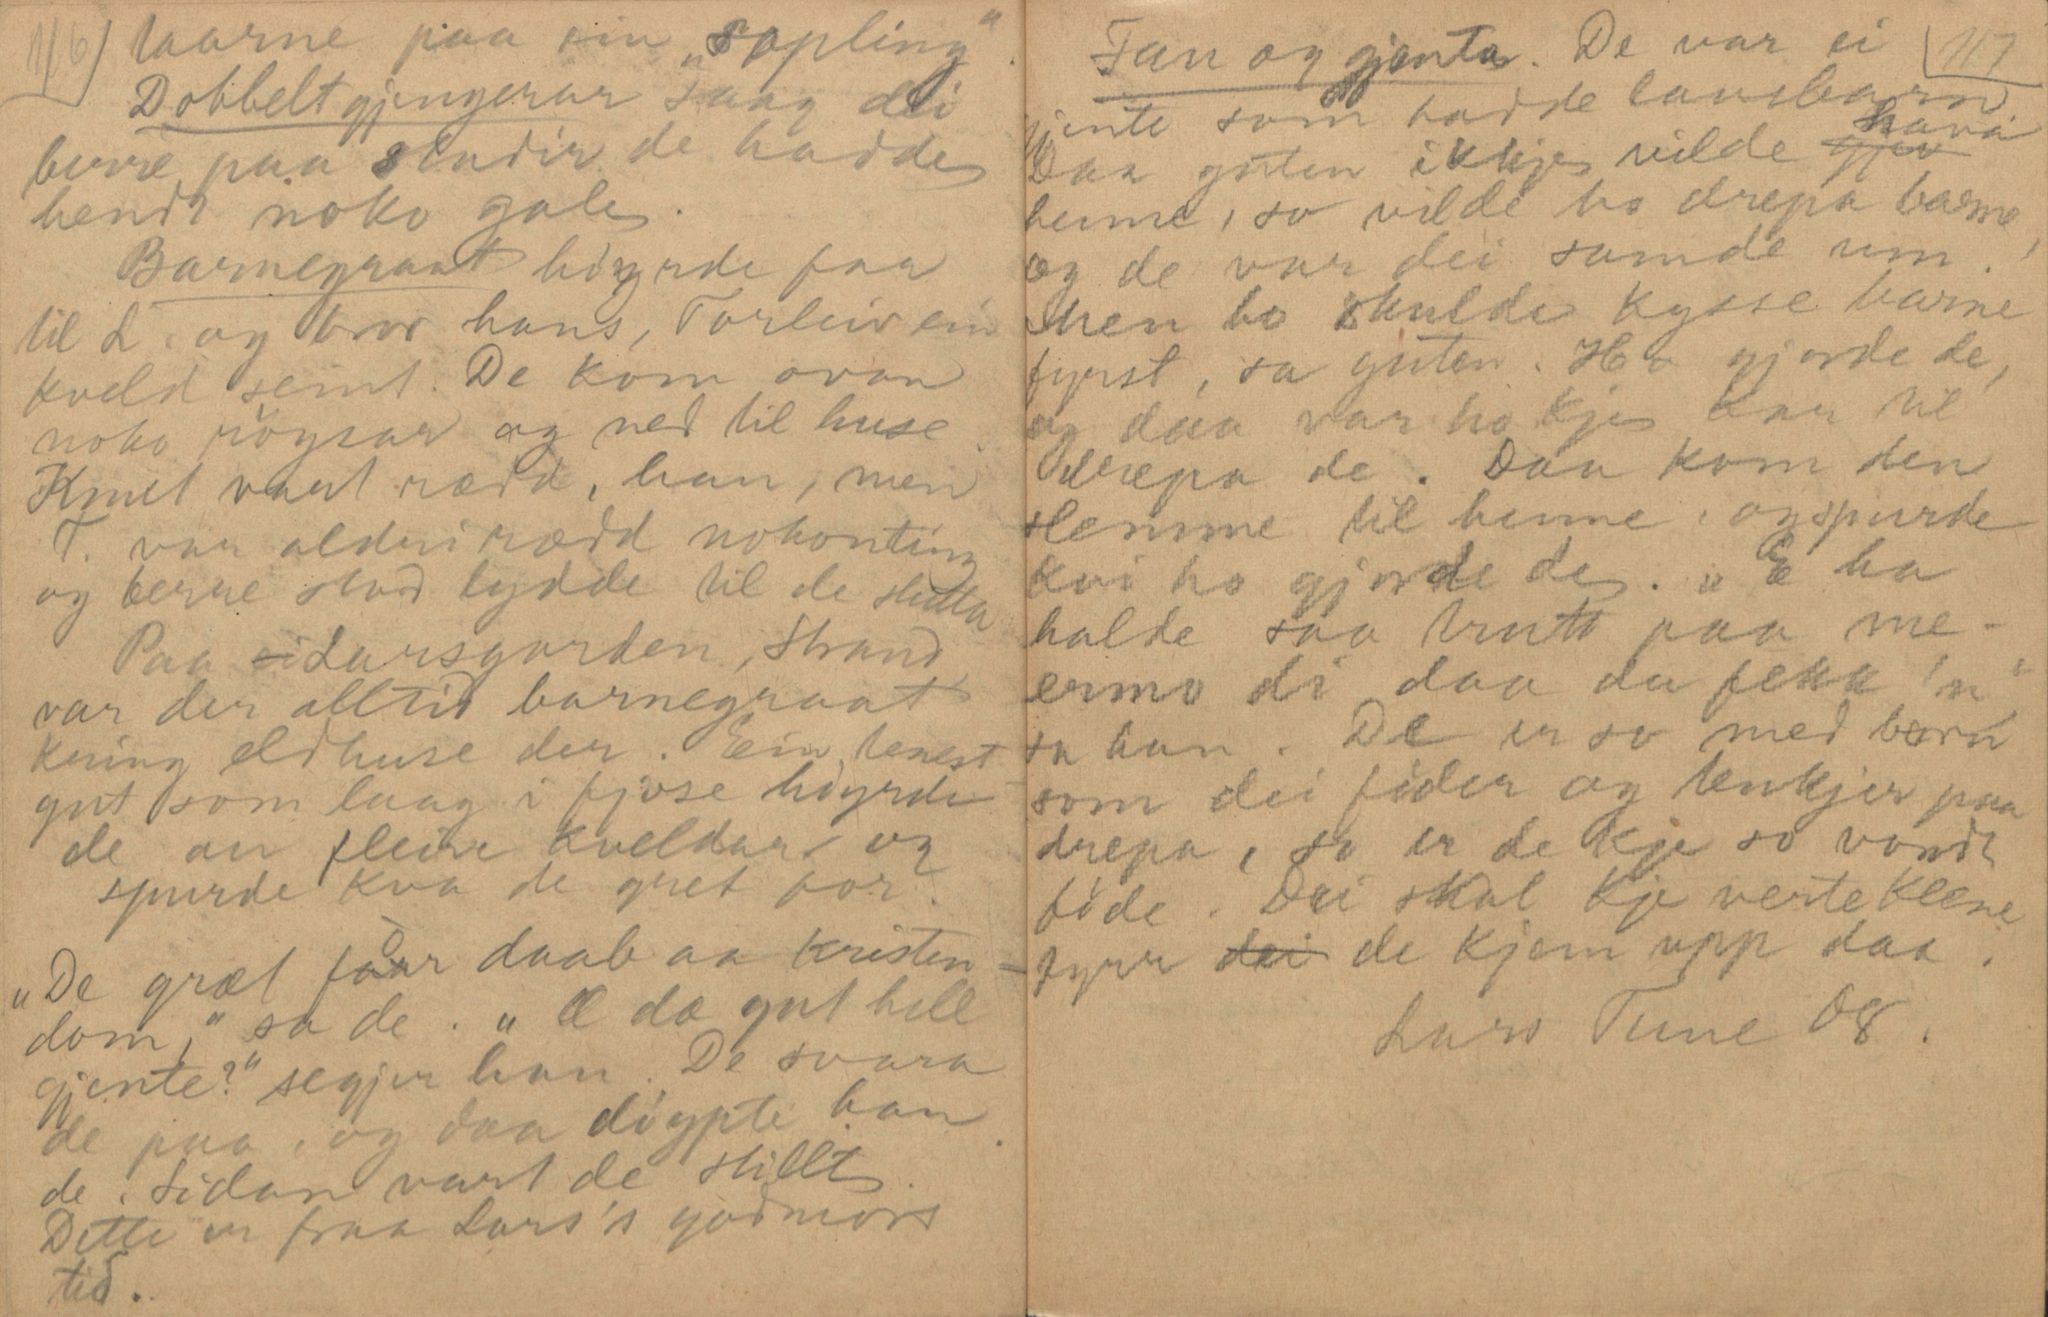 116) taarne paa sin „sopling“.
Dobbeltgjengerar saag dei
berre paa stadir de hadde
hendt noko gale.
Barnegraat höyrde far
til L. og bror hans, Torleiv ein
kveld seint. De kom ovan
noko röysar og ned til huse.
Knut vart rædd, han, men
T. var aldri rædd nokonting
og berre stod lydde til de slutta
Paa Larsgarden, Strand
var der alltid barnegraat
kring eldhuse der. Ein tenest-
gut som laag i fjose höyrde
de an fleire kveldar og
spurde kva de gret for.
„De græt for daab aa kristen-
dom,“ sa de. „Æ dæ gut hell
gjente?“ segjer han. De svara
de paa, og daa döypte han
de. Sidan vart de stillt.
Dette er fraa Lars's godmors
tid.
117
Fan og gjenta. De var ei
gjente som hadde lausbarn
Daa guten ikkje vilde gjev hava
henne, so vilde ho drepa barne,
og de var dei samde um.
Men ho skulde kysse barne
fyrst, sa guten. Ho gjorde de,
og daa var ho kje kar til
drepa de. Daa kom den
slemme til henne, og spurde
kvi ho gjorde de. „E ha
halde saa trutt paa me-
ermo di daa du fekk 'n“
sa han. De er so med born
som dei föder og tenkjer paa
drepa, so er de kje so vondt
föde. Dei skal kje verte klene
fyrr dei de kjem upp daa.
Lars Tune 08.